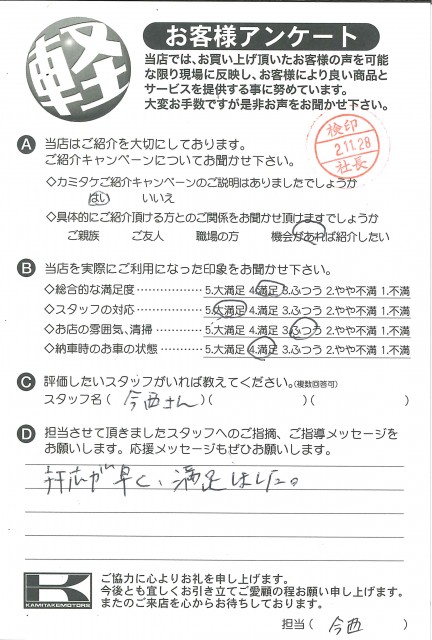 軽
お客様アンケート
当店では、お買い上げ頂いたお客様の声を可能
な限り現場に反映し、お客様により良い商品と
サービスを提供する事に努めています。
大変お手数ですが是非お声をお聞かせ下さい。
検印
2.11.28
社長
A 当店はご紹介を大切にしております。
ご紹介キャンペーンについてお聞かせ下さい。
◇カミタケご紹介キャンペーンのご説明はありましたでしょうか
はい いいえ
◇具体的にご紹介頂ける方とのご関係をお聞かせ頂けますでしょうか
ご親族 ご友人 職場の方 機会があれば紹介したい
B 当店を実際にご利用になった印象をお聞かせ下さい。
◇総合的な満足度……………… 5.大満足 4.満足 3.ふつう 2.やや不満 1.不満
◇スタッフの対応……………… 5.大満足 4.満足 3.ふつう 2.やや不満 1.不満
◇お店の雰囲気、清掃………… 5.大満足 4.満足 3.ふつう 2.やや不満 1.不満
◇納車時のお車の状態………… 5.大満足 4.満足 3.ふつう 2.やや不満 1.不満
C 評価したいスタッフがいれば教えてください。(複数回答可)
スタッフ名( 今西さん )( )( )
D 担当させて頂きましたスタッフへのご指摘、ご指導メッセージを
お願いします。応援メッセージもぜひお願いします。
対応が早く、満足しました。
KAMITAKEMOTORS
ご協力に心よりお礼を申し上げます。
今後とも宜しくお引き立てご愛顧の程お願い申し上げます。
またのご来店を心からお待ちしております。
担当( 今西 )